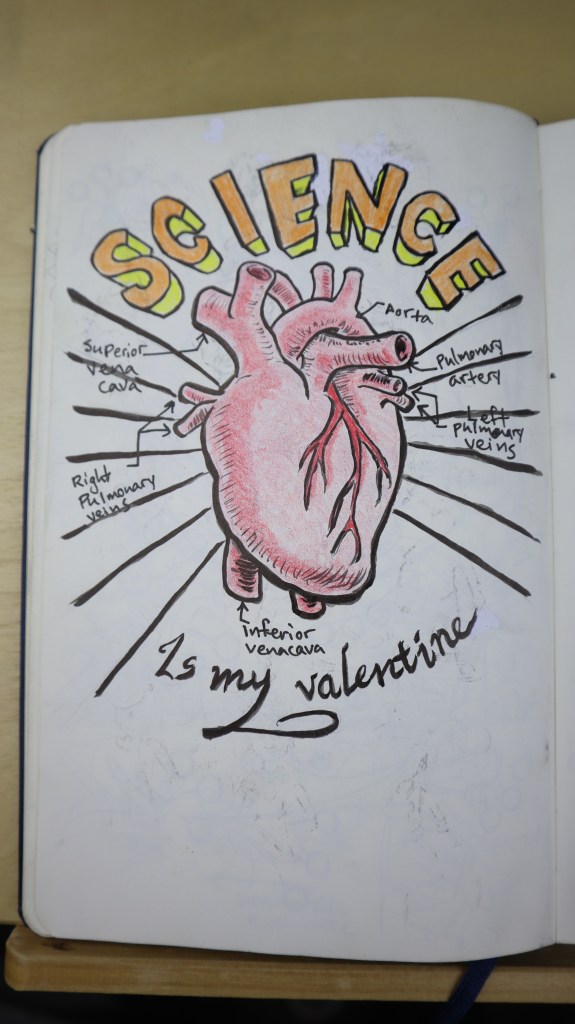 SCIENCE
Aorta
Superior
vena
cava
Pulmonary
artery
Left
pulmonary
veins
Right
Pulmonary
veins
inferior
venacava
Is my valentine